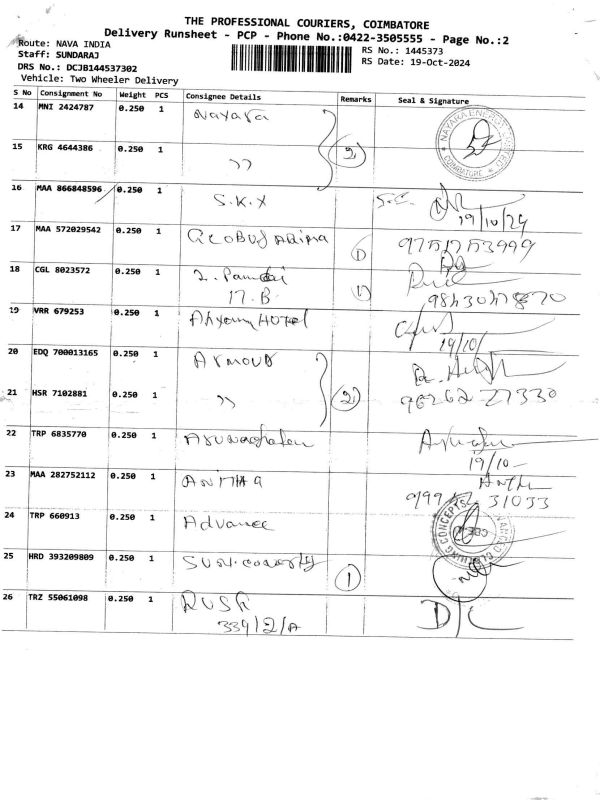 THE PROFESSIONAL COURIERS, COIMBATORE
Delivery Runsheet - PCP - Phone No.:0422-3505555 - Page No.:2
Route: NAVA INDIA
RS No.: 1445373
Staff: SUNDARAJ
RS Date: 19-Oct-2024
DRS No.: DCJB144537302
Vehicle: Two Wheeler Delivery
S No Consignment No Weight PCS Consignee Details Remarks Seal & Signature
14 MNI 2424787 0.250 1 Nayara
NAYARA ENERGY LIMITED
COIMBATORE
15 KRG 4644386 0.250 1 " 2
16 MAA 866848596 0.250 1 S.K.X
19/10/24
17 MAA 572029542 0.250 1 1 9751753999
18 CGL 8023572 0.250 1 1
17.B
19 VRR 679253 0.250 1 HOTEL
19/10/
20 EDQ 700013165 0.250 1 ARMOUR
21 HSR 7102881 0.250 1 " 2
22 TRP 6835770 0.250 1
19/10
23 MAA 282752112 0.250 1 ANITHA
31033
24 TRP 660913 0.250 1 Advance
CLOTHING CONCEPTS
25 HRD 393209809 0.250 1 1
26 TRZ 55061098 0.250 1 RUSH D/C
339/2/A